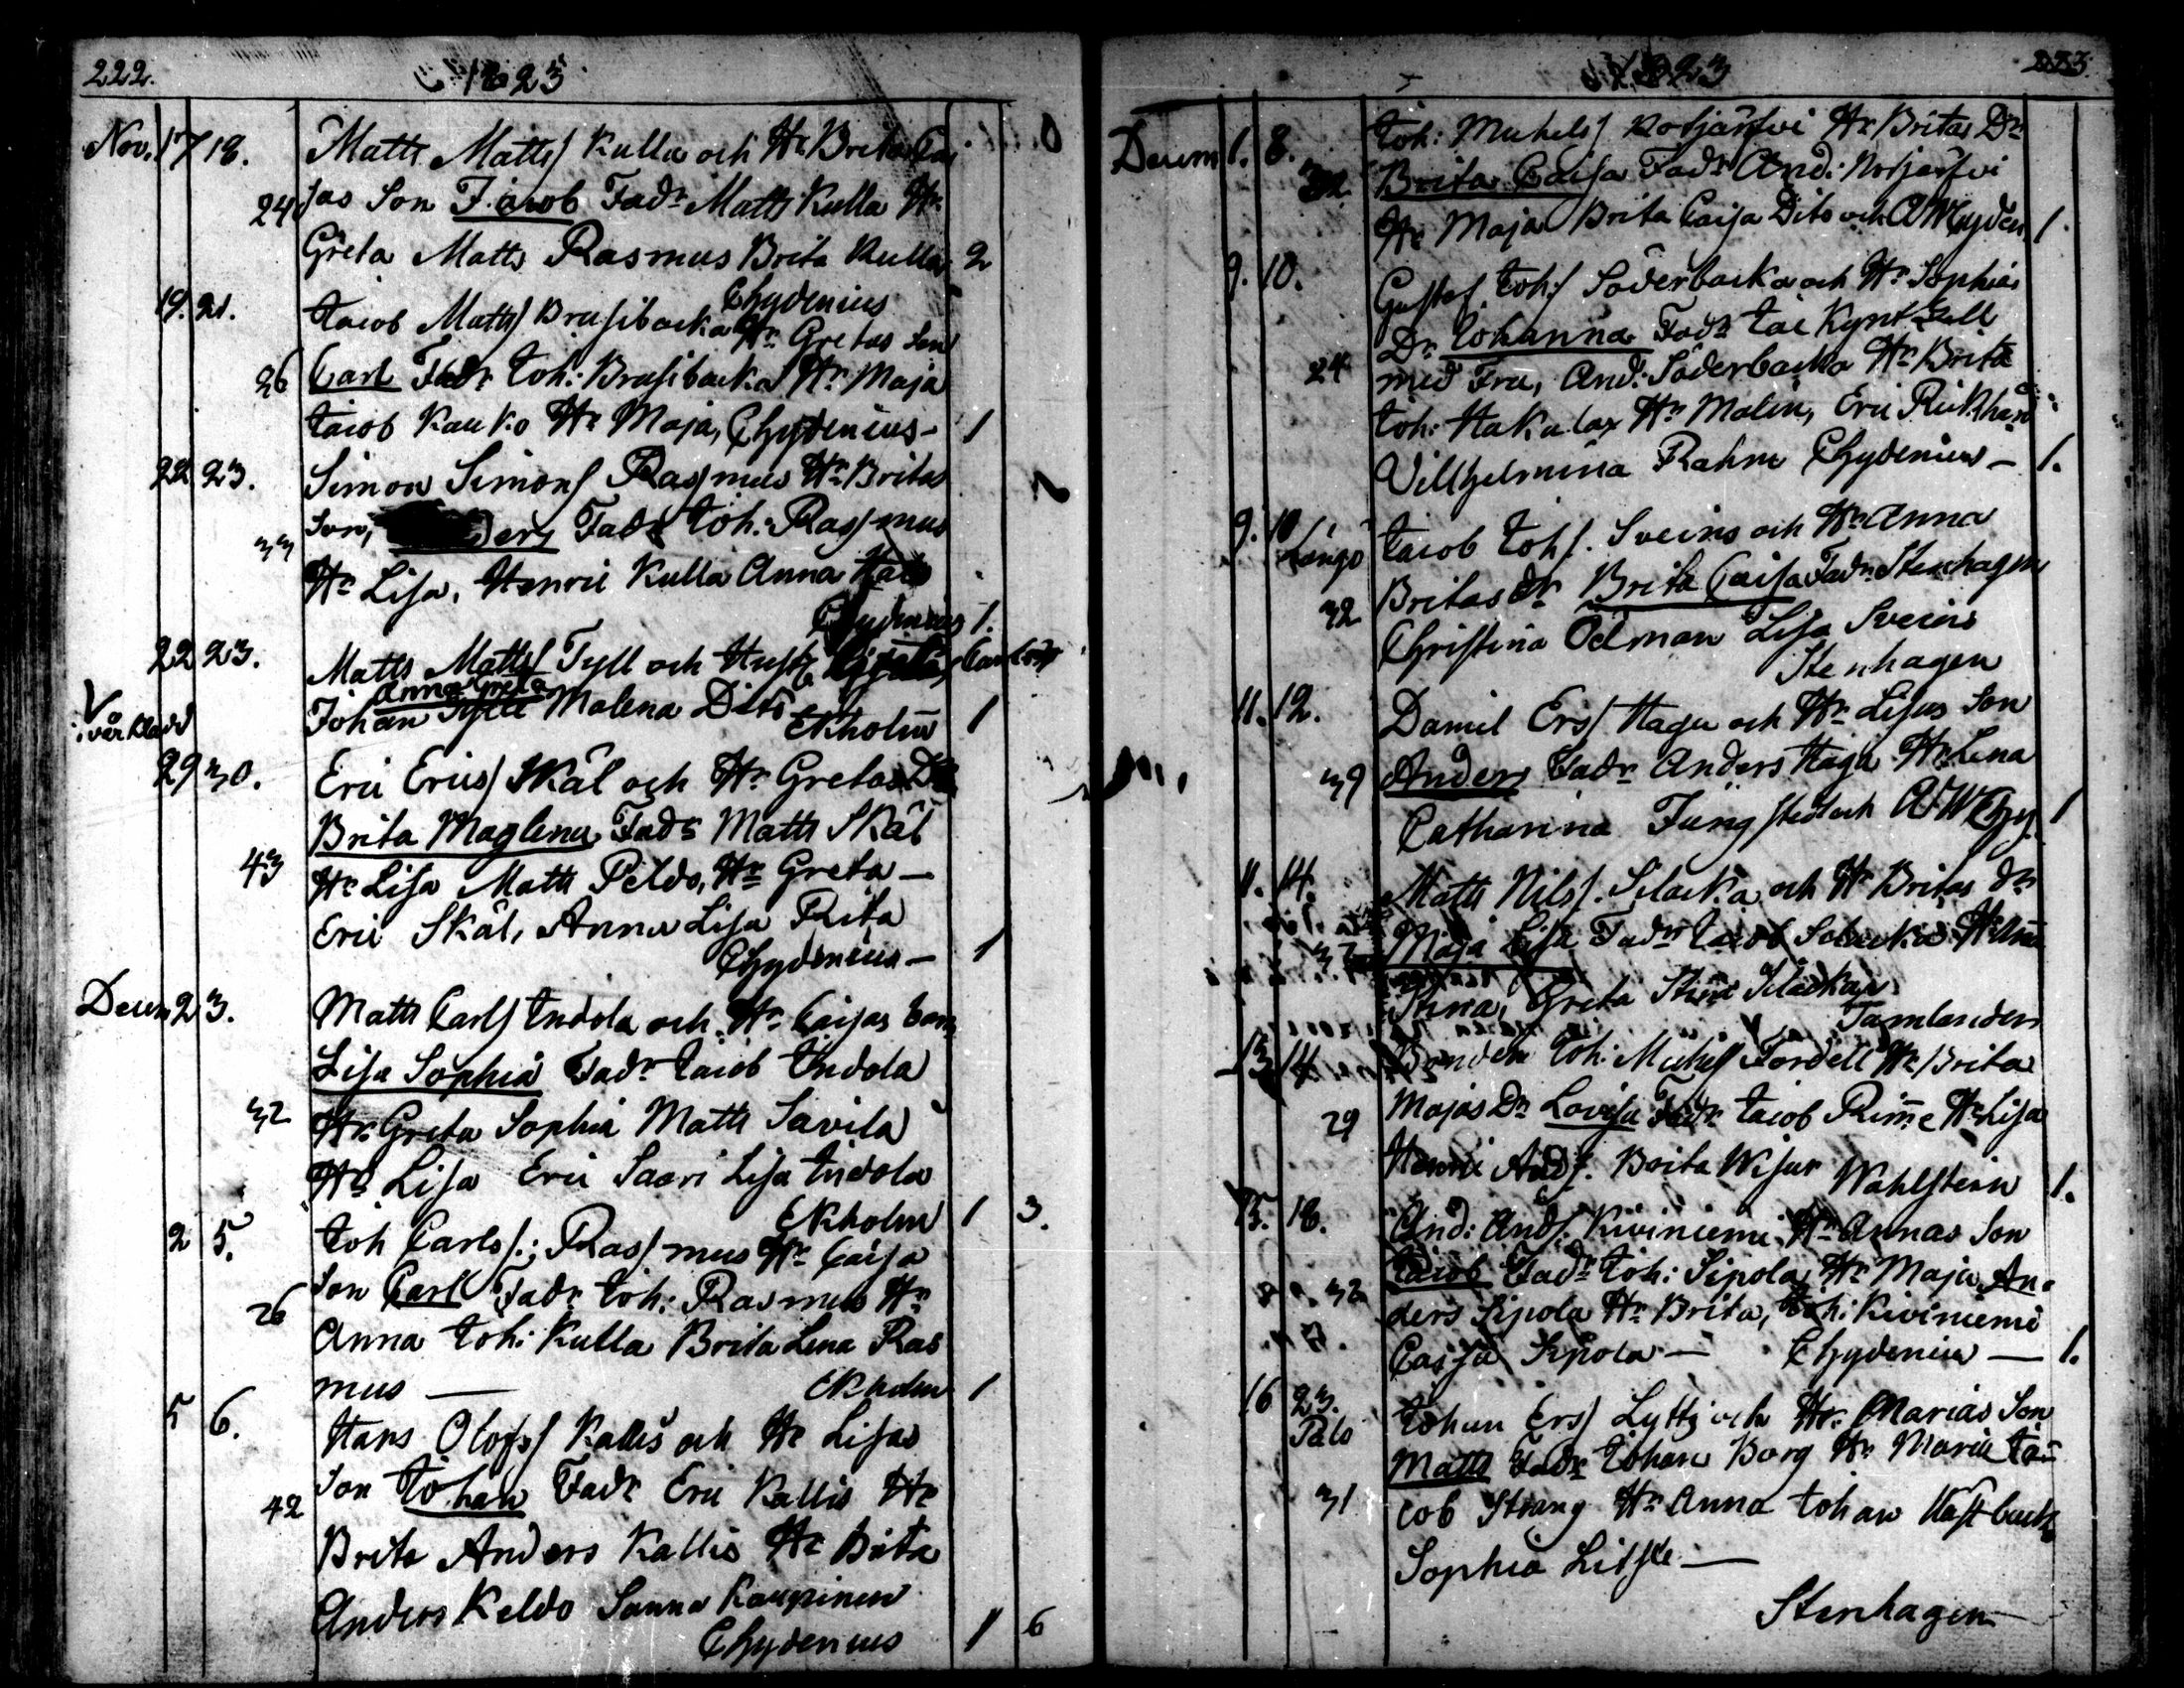 222. 1823
Nov. 17 18. Matts Matts/ Kulla och Hu Brita Cai
24 sas Son Jacob Fadr Matts Kulla Hu
Greta Matts Rasmus Brita Kulla 2
Chydenius
19. 21. Jacob Matts/ Brasibacka Hu Gretas Son
26 Carl Fadr Joh: Brasibacka Hu Maja
Jacob Kauko Hu Maja, Chydenius - 1
22 23. Simon Simons/ Rasmus Hu Britas
Son, Fadr Joh: Rasmus
33 Hu Lisa, Henric Kulla Anna
Chydenius 1.
22 23. Matts Matts/ Tyll och Hust
Anna Greta
Johan Tylli Malena Dito Ekholm 1
29 30. Eric Erics/ Skäl och Hu Gretas Dr
Brita Maglena Fadr Matts Skäl
43 Hu Lisa Matts Peldo, Hu Greta —
Eric Skäl, Anna Lisa Rita
Chydenius — 1
Decem 2 3. Matts Carls/ Indola och Hu Caisas barn
Lisa Sophia Fadr Jacob Indola
32 Hu Greta Sophia Matts Savila
Hu Lisa Eric Saari Lisa Indola
Ekholm 1 3.
2 5. Joh Carls/: Rasmus Hu Caisa
Son Carl Fadr Joh: Rasmus Hu
26 Anna Joh: Kulla Brita Lena Ras
mus — Ekholm 1
5 6. Hans Olofs/ Kallis och Hu Lisas
Son Johan Fadr Eric Kallis Hu
42 Brita Anders Kallis Hu Brita
Anders Keldo Sanna Kaupinen
Chydenius 1 6
1823 223.
Decem 1. 8. Joh: Michels/ Norjärfvi Hu Britas Dr
32 Brita Caisa Fadr And: Norjärfvi
Hu Maja Brita Caisa Dito och A W Chyden 1.
9. 10. Gustaf Joh:/ Söderbacka och Hu Sophias
Dr Johanna Fadr Jac Kyntzell
24 med Fru, And: Söderbacka Hu Brita
Joh: Hakalax Hu Malin, Eric Rickhard
Villhelmina Rahm Chydenius — 1.
9. 10 Jacob Joh/. Sveins och Hu Anna
Britas dr Brita Caisa Fadr Stenhagen
32 Christina Oelman Lisa Sveins
Stenhagen
11. 12. Daniel Ers/ Haga och Hu Lisas Son
39 Anders Fadr Anders Haga Hu Lena
Catharina Jungstedt och A W Chy. 1
11. 14. Matts Nils/. Slacka och Hu Britas dr
Maja Lisa Fadr Jacob Slacka Hu
Stina, Greta Stina Slacka
Tamlander
13 14 Bonden Joh: Michels/ Tordell Hu Brita
29 Majas Dr Lovisa Fadr Jacob Rime Hu Lisa
Henric And/. Brita Visur Wahlstein 1.
15. 18. And: And/. Kiviniemi Hu Annas Son
32 Jacob Fadr Joh: Sipola, Hu Maja An-
ders Sipola Hu Brita, Joh: Kiviniemi
Caisa Sipola — Chydenius — 1.
16 23. Johan Ers/ Lyttz och Hu Marias Son
Palo Matts Fadr Johan Borg Hu Maria Ja-
31 cob Strang Hu Anna Johan
Sophia —
Stenhagen